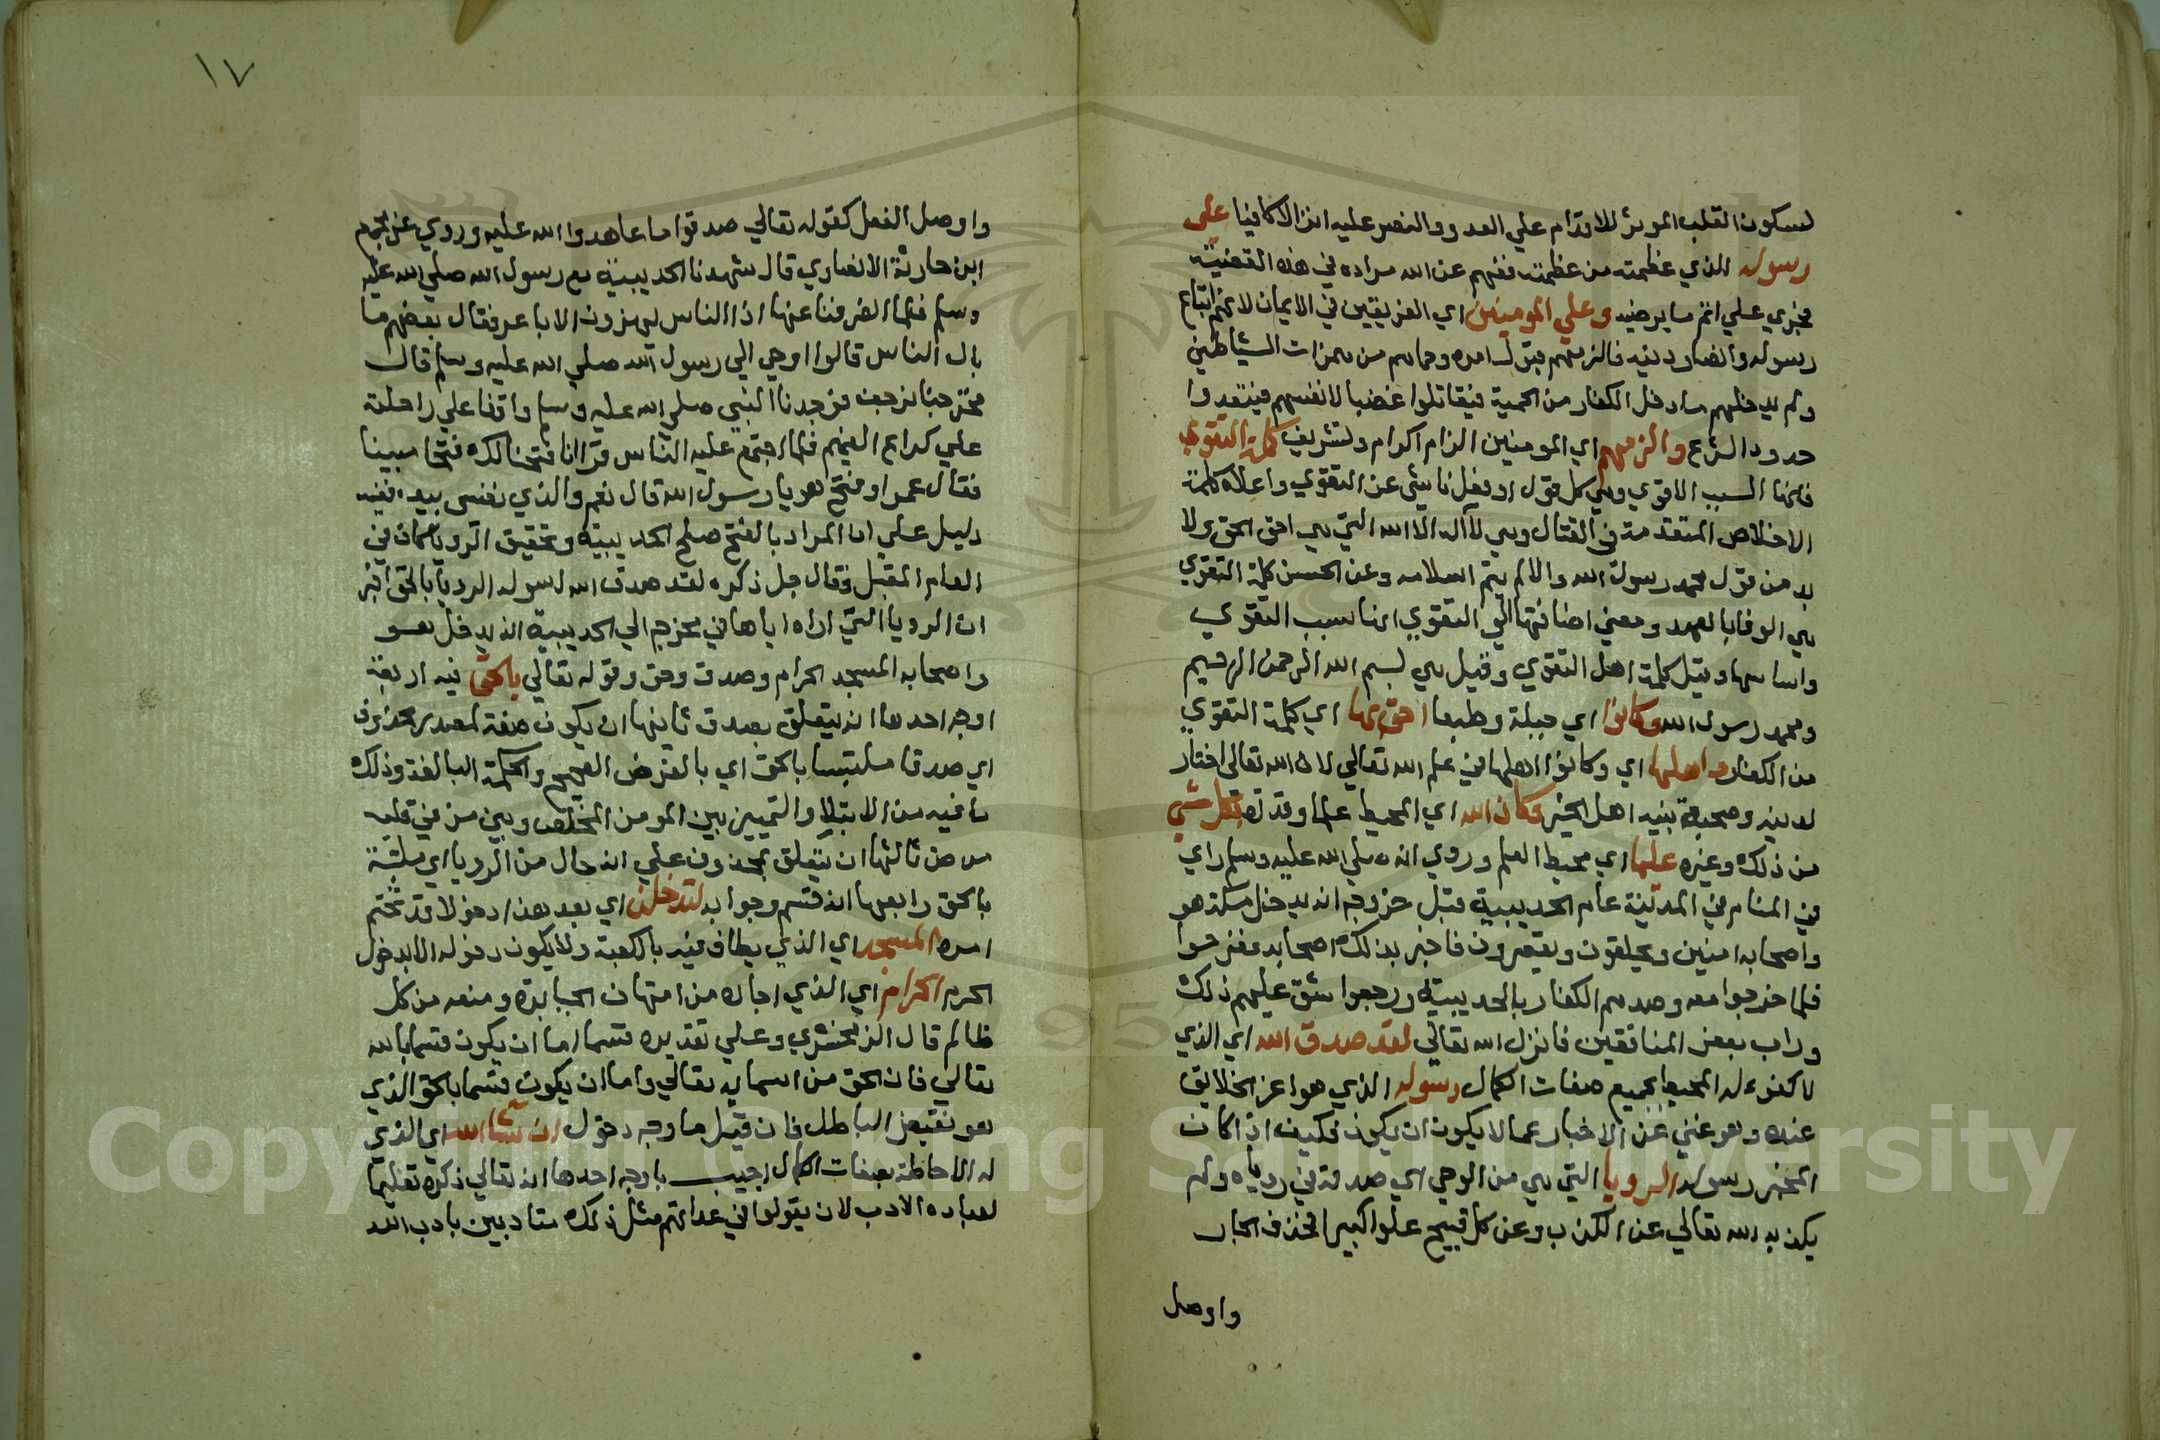 لسكون القلب الموثر للاقدام علي العدو والنصر عليه انزالا كافيا على
رسوله الذي عظمته من عظمته ففهم عن الله مراده في هذه القضية
فجري علي اتم ما يرضيه وعلي المومنين اي العريقين في الايمان لانهم اتباع
رسوله وانصار دينه فالزمهم قبول امره وحماهم من همزات الشياطين
ولم يدخلهم ما دخل الكفار من الحمية فيقاتلوا غضبا لانفسهم فيتعدوا
حدود الشرع والزمهم اي المومنين الزام اكرام وتشريف كلمة التقوي
فانها السبب الاقوي وهي كل قول او فعل ناشي عن التقوي واعلاه كلمة
الاخلاص المتقدمة في القتال وهي لا اله الا الله التي هي احق الحق ولا
بد من قول محمد رسول الله والا لم يتم اسلامه وعن الحسن كلمة التقوي
هي الوفا بالعهد ومعني اضافتها الي التقوي انها سبب التقوي
واساسها وقيل كلمة اهل التقوي وقيل هي بسم الله الرحمن الرحيم
ومحمد رسول الله وكانوا اي جبلة وطبعا احق بها اي كلمة التقوي
من الكفار واهلها اي وكانوا اهلها في علم الله تعالي لان الله تعالي اختار
لدينه وصحبة نبيه اهل الخير وكان الله اي المحيط علما وقدرة بكل شي
من ذلك وغيره عليما اي محيط العلم وروي انه صلي الله عليه وسلم راي
في المنام في المدينة عام الحديبية قبل خروجه انه يدخل مكة هو
واصحابه امنين ويحلقون ويقصرون فاخبر بذلك اصحابه ففرحوا
فلما خرجوا معه وصدهم الكفار بالحديبية ورجعوا شق عليهم ذلك
وراب بعض المنافقين فانزل الله تعالي لقد صدق الله اي الذي
لا كفوء له المحيط بجميع صفات الكمال رسوله الذي هو اعز الخلايق
عنده وهو غني عن الاخبار عما لا يكون ان يكون فكيف اذا كان
المخبر رسوله الرويا التي هي من الوحي اي صدقه في روياه ولم
يكذبه الله تعالي عن الكذب وعن كل قبيح علوا كبيرا فحذف الجار
واوصل
١٧
واوصل الفعل كقوله تعالي صدقوا ما عاهدوا الله عليه وروي عن مجمع
ابن حارثة الانصاري قال شهدنا الحديبية مع رسول الله صلي الله عليه
وسلم فلما انصرفنا عنها اذا الناس يهزون الاباعر فقال بعضهم ما
بال الناس قالوا اوحي الي رسول الله صلي الله عليه وسلم قال
فخرجنا نرجف فوجدنا النبي صلي الله عليه وسلم واقفا علي راحلته
علي كراع الغميم فلما اجتمع عليه الناس قرا انا فتحنا لك فتحا مبينا
فقال عمر او فتح هو يا رسول الله قال نعم والذي نفسي بيده ففيه
دليل علي ان المراد بالفتح صلح الحديبية وتحقيق الرويا كان في
العام المقبل فقال جل ذكره لقد صدق الله رسوله الرويا بالحق اخبر
ان الرويا التي اراه اياها في مخرجه الي الحديبية انه يدخل هو
واصحابه المسجد الحرام وصدق وحق وقوله تعالي بالحق فيه اربعة
اوجه احدها انه يتعلق بصدق ثانيها ان يكون صفة لمصدر محذوف
اي صدقا ملتبسا بالحق اي بالغرض الصحيح والحكمة البالغة وذلك
ما فيه من الابتلا والتمييز بين المومن المخلص وبين من في قلبه
مرض ثالثها ان يتعلق بمحذوف علي انه حال من الرويا اي ملتبسة
بالحق رابعها انه قسم وجوابه لتدخلن اي بعد هذا دخولا قد تحتم
امره المسجد اي الذي يطاف فيه بالكعبة ولا يكون دخوله الا بدخول
الحرم الحرام اي الذي اجاره من امتهان الجبابرة ومنعه من كل
ظالم قال الزمخشري وعلي تقديره قسما اما ان يكون قسما بالله
تعالي فان الحق من اسمايه تعالي واما ان يكون قسما بالحق الذي
هو نقيض الباطل فان قيل ما وجه دخول ان شا الله اي الذي
له الاحاطة بصفات الكمال اجيب باوجه احدها انه تعالي ذكره تعليما
لعباده الادب لان يقولوا في عداتهم مثل ذلك متادبين بادب الله